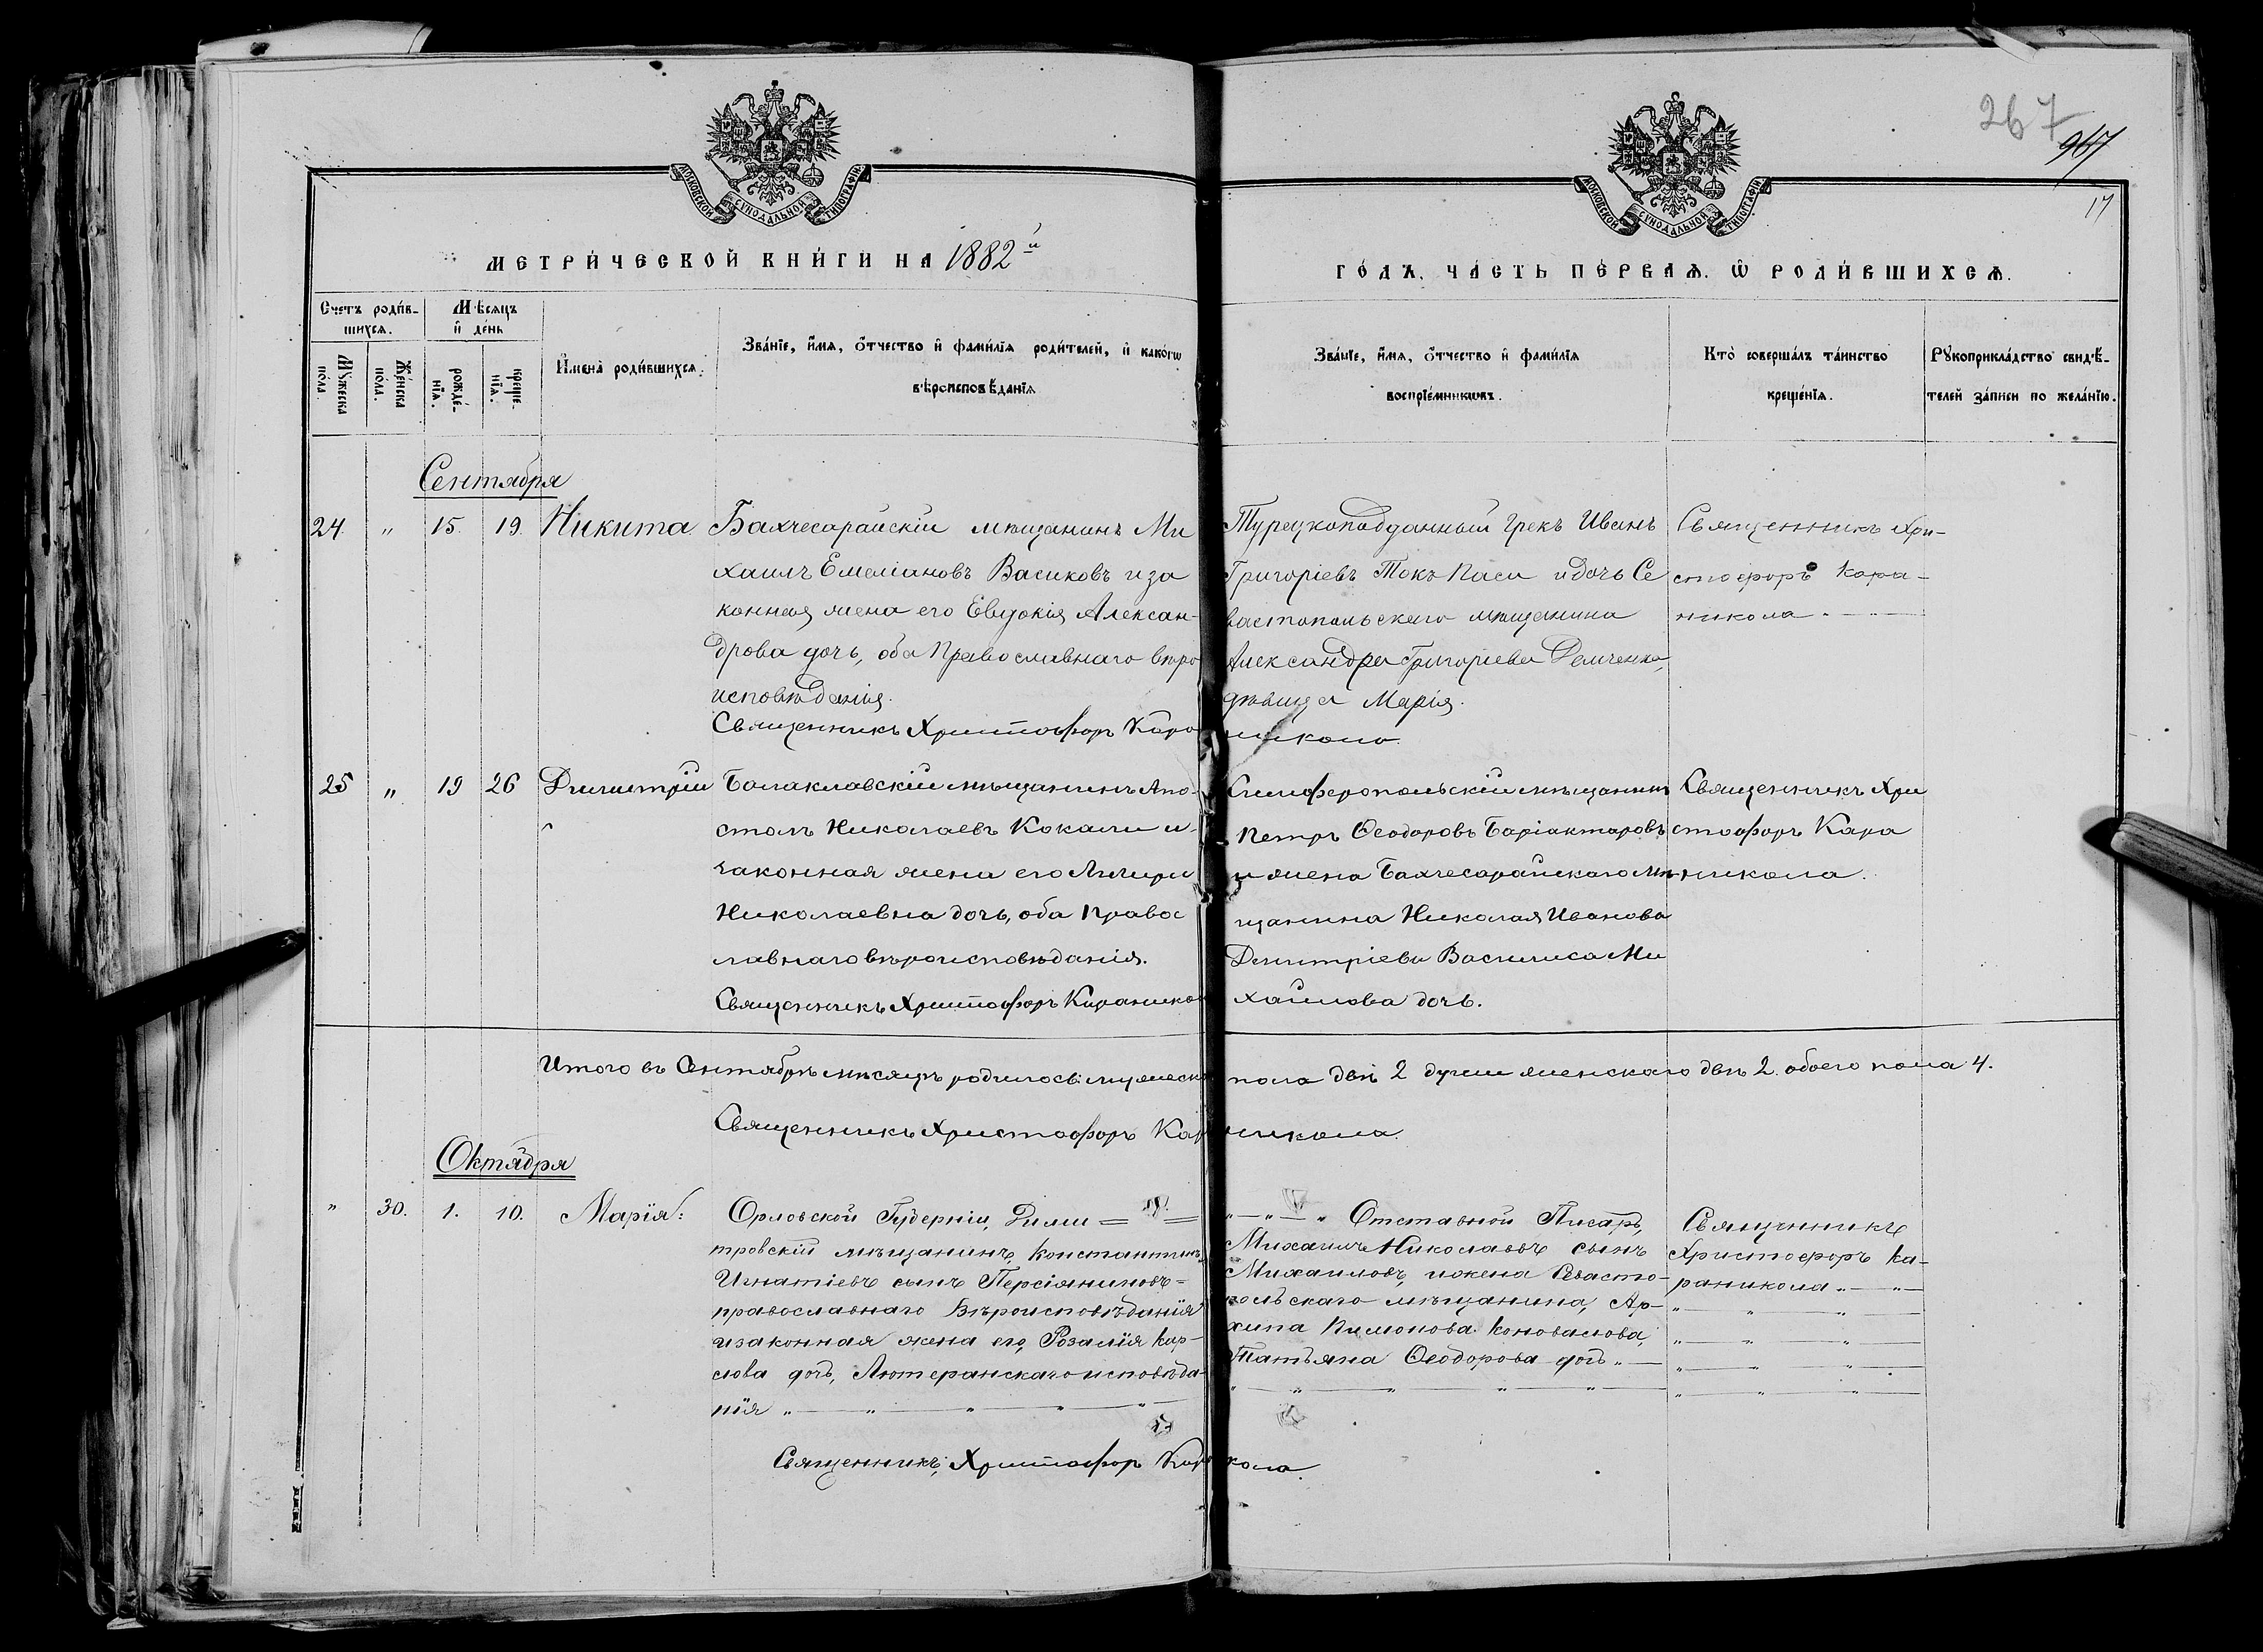 267
967
17
МОСКОВСКОЙ СѴНОДАЛЬНОЙ ТИПОГРАФІИ
МОСКОВСКОЙ СѴНОДАЛЬНОЙ ТИПОГРАФІИ
МЕТРИ́ЧЕСКОЙ КНИ́ГИ НА 1882й
ГО́ДЪ, ЧА́СТЬ ПЕ́РВАѦ, Ѡ РОДИ́ВШИХСѦ.
Счетъ роди́в-
шихсѧ.
Мѣсѧцъ
и де́нь
Мꙋ́жеска по́ла.
Же́нска по́ла.
рожде́-нїѧ.
креще́-нїѧ.
Имена̀ роди́вшихсѧ.
Зва́нїе, и́мѧ, ѻ́тчество и фами́лїѧ роди́телей, и како́гѡ
вѣроисповѣ́данїѧ
Зва́нїе, и́мѧ, ѻ́тчество и фами́лїѧ
воспрїе́мникѡвъ.
Кто̀ соверша́лъ та́инство
креще́нїѧ.
Рꙋкоприкла́дство свидѣ́-
телей за́писи по жела́нїю.
Сентября
24. " 15. 19. Никита. Бахчесарайскій мѣщанинъ Ми
хаилъ Емеліановъ Васиковъ и за
конная жена его Евдокія Алексан-
дрова дочь, оба Православнаго вѣро
исповѣданія.
Священникъ Христофоръ Кара
никола.
Турецкоподданный Грекъ Иванъ
Григоріевъ Токъ Паси и дочь Се
вастопольскаго мѣщанина
Александра Григоріева Демченко,
дѣвица Марія.
Священникъ Хри-
стофоръ Кара-
никола
25 " 19 26 Димитрій Балаклавскій мѣщанинъ Апо-
столъ Николаевъ Кокали и
законная жена его
Николаевна дочь, оба Правос
лавнаго вѣроисповѣданія.
Священникъ Христофоръ Караникол
Симферопольскій мѣщанинъ
Петръ Ѳеодоровъ Баріактаровъ
и жена Бахчесарайскаго мѣ
щанина Николая Иванова
Димитріева Василиса Ми
хайлова дочь.
Священникъ Хри
стофоръ Кара
никола.
Итого въ Сентябрѣ мѣсяцѣ родилось: мужеск пола двѣ 2 души женскаго двѣ 2. обоего пола 4.
Священникъ Христофоръ Караникола.
Октября
" 30. 1. 10. Марія: Орловской Губерніи, Дими=
тровскій мѣщанинъ, Константинъ
Игнатіевъ сынъ Персіяниновъ=
православнаго Вѣроисповѣданія
и законная жена его, Розалія Кар-
лова дочь, Лютеранскаго исповѣда-
нія
Священникъ, Христофоръ Кара
кола.
Отставной Писарь,
Михаилъ Николаевъ сынъ
Михаиловъ, и жена Севасто-
польскаго мѣщанина, Ар-
хипа Пимонова Коновалова,
Татьяна Ѳеодорова дочь
Священникъ
Христофоръ Ка-
раникола